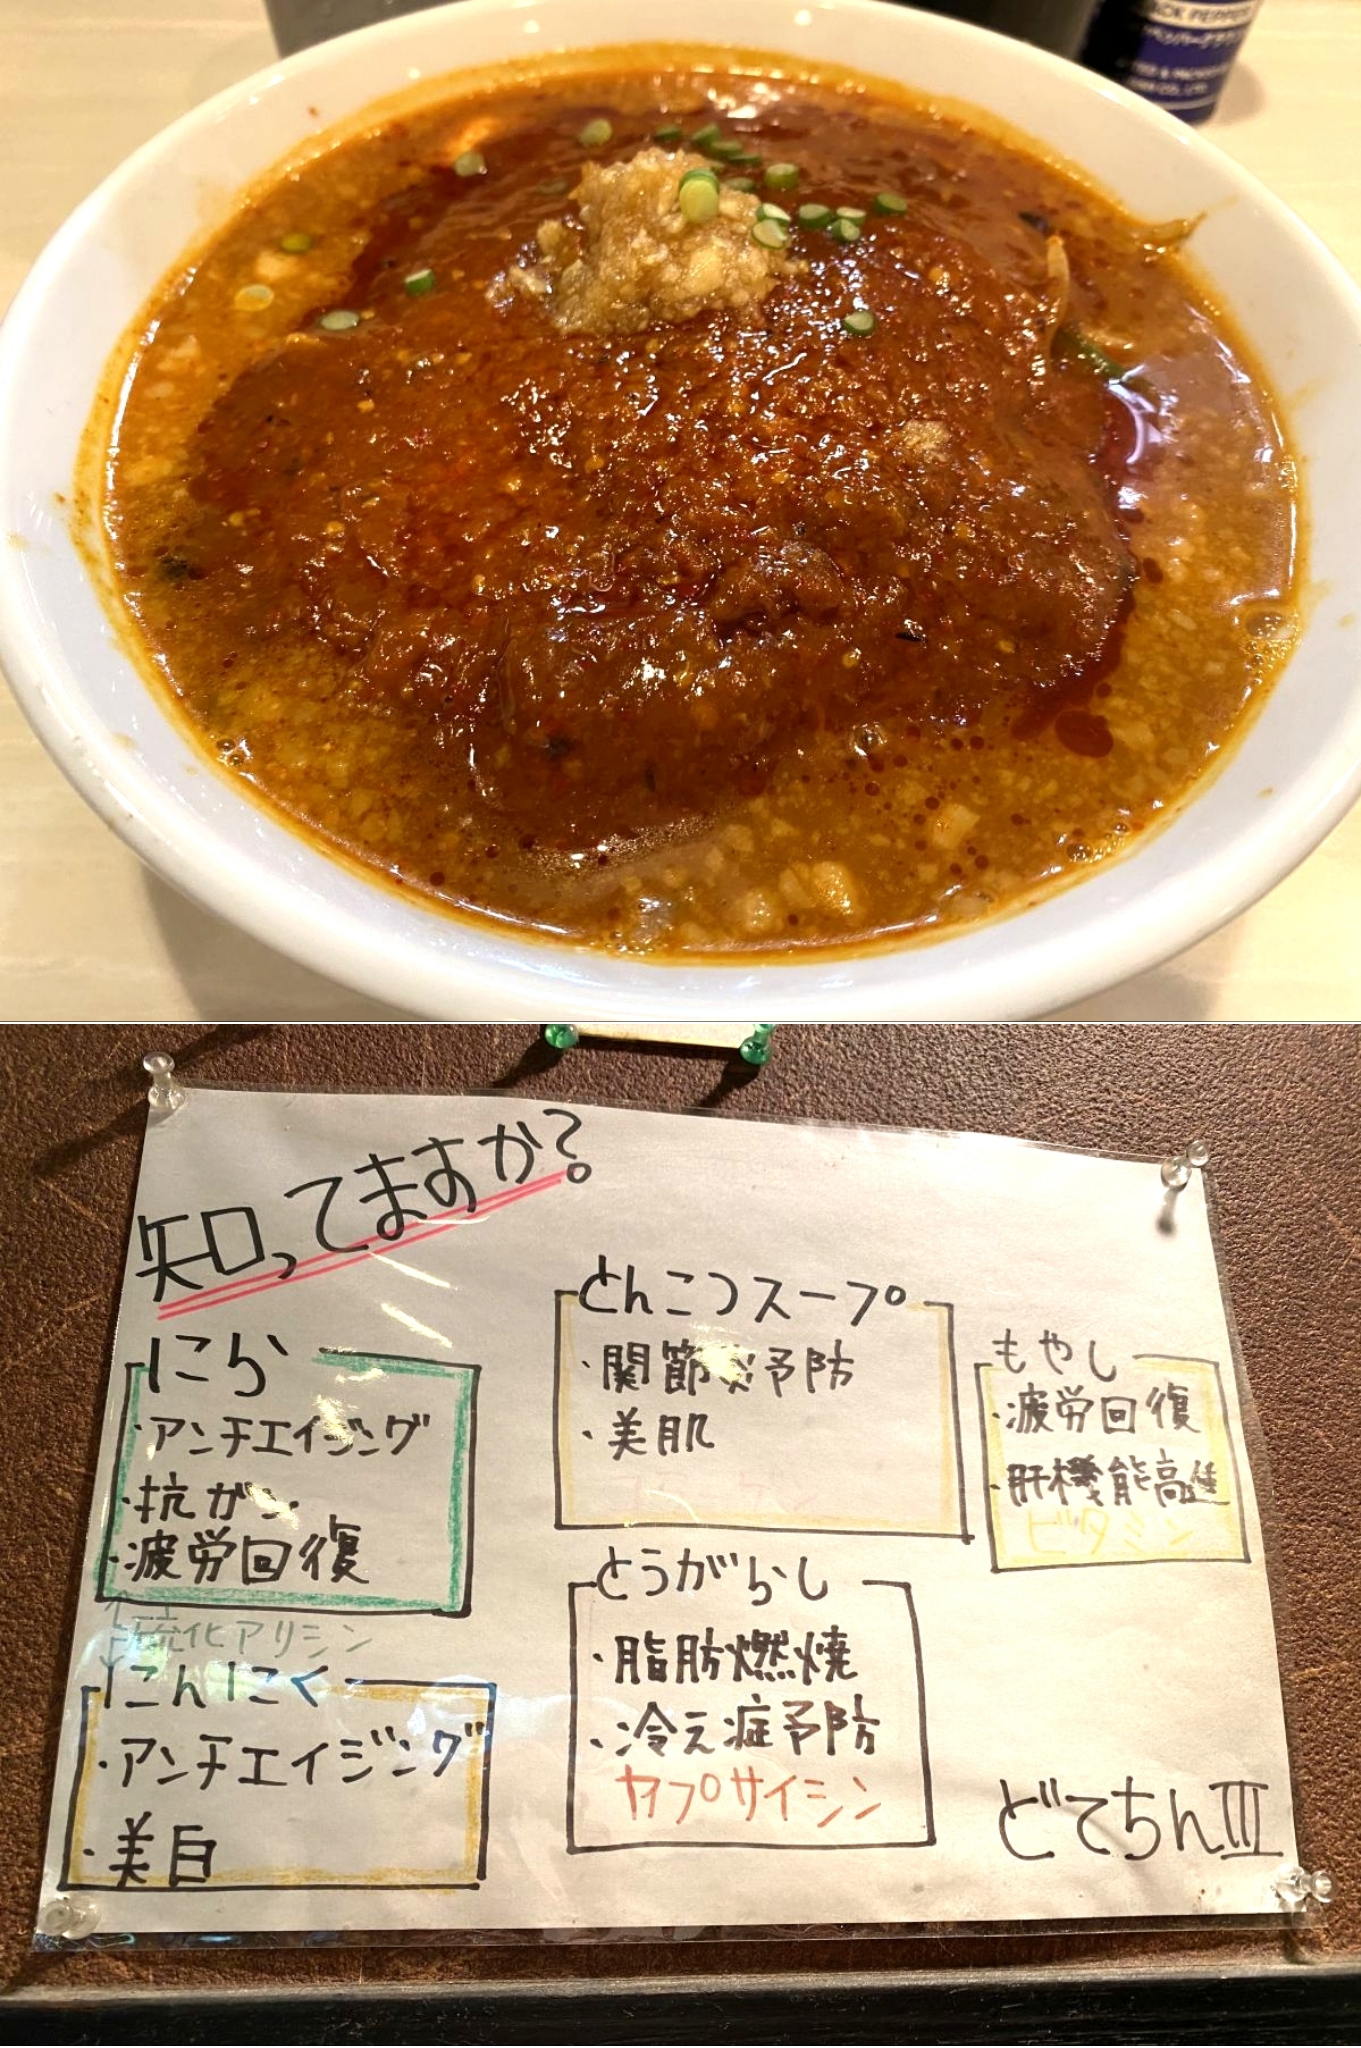 CK PEPPER
知ってますか?
にら
・アンチエイジング
・抗ガン
・疲労回復
硫化アリシン
にんにく
・アンチエイジング
・美白
とんこつスープ
・関節炎予防
・美肌
とうがらし
・脂肪燃焼
・冷え症予防
カプサイシン
もやし
・疲労回復
・肝機能高進
ビタミン
どてちんIII